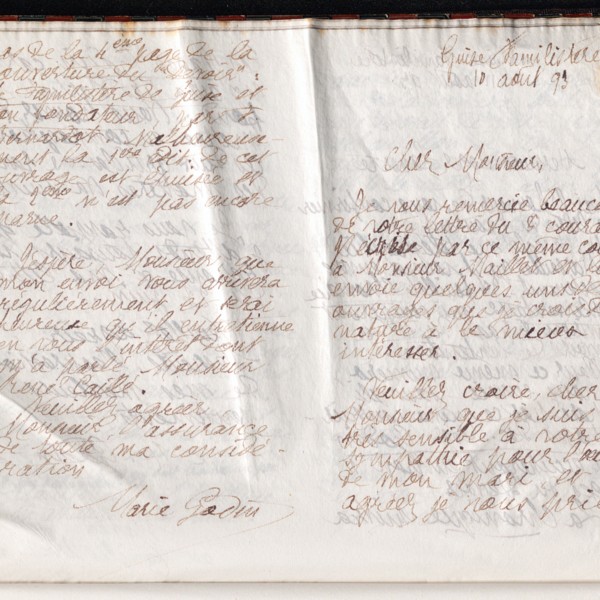 de la 4eme page de la
couverture du "Devoir":
Familistère de Guise et
son fondateur
Bernardot Malheureuse-
ment la 1ère édit. de cet
ouvrage est épuisée et
la 2eme n'est pas encore
parue.
J'espère, Monsieur, que
mon envoi vous arrivera
régulièrement et serai
heureuse qu'il entretienne
en vous l'intérêt dont
m'a parlé Monsieur
René Caille.
Veuillez agréer
Monsieur, l'assurance
de toute ma considé-
ration
Marie Godin
Guise Familistère
10 août 93
Cher Monsieur,
Je vous remercie beauco
de votre lettre du 8 coura
J'écris par ce même cou
à Monsieur Maillet et lui
envoie quelques uns des
ouvrages que je crois de
nature à le mieux
intéresser.
Veuillez croire, cher
Monsieur que je suis
très sensible à votre
sympathie pour l'œu
de mon mari et
agréer je vous prie